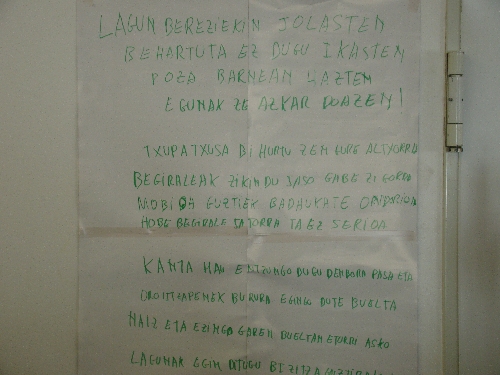 LAGUN BEREZIEKIN JOLASTEN
BEHARTUTA EZ DUGU IKASTEN
POZA BARNEAN HAZTEN
EGUNAK ZE AZKAR DOAZEN!
TXUPATXUSA BIHURTU ZEN GURE ALTXORRA
BEGIRALEAK ZIKINDU JASO GABE ZIGORRA
MOBIDA GUZTIEK BADAUKATE
HOBE BEGIRALE TA EZ SERIOA
KANTA HAU ENTZUNGO DUGU DENBORA PASA ETA
OROITZAPENEK BURURA EGINGO DUTE BUELTA
NAIZ ETA EZINGO GAREN BUELTAN ETORRI ASKO
LAGUNAK EGIN DITUGU BIZITZA